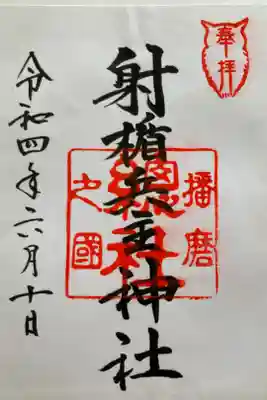 奉拝
射楯兵主神社
播磨
総社
之國
令和四年六月十日